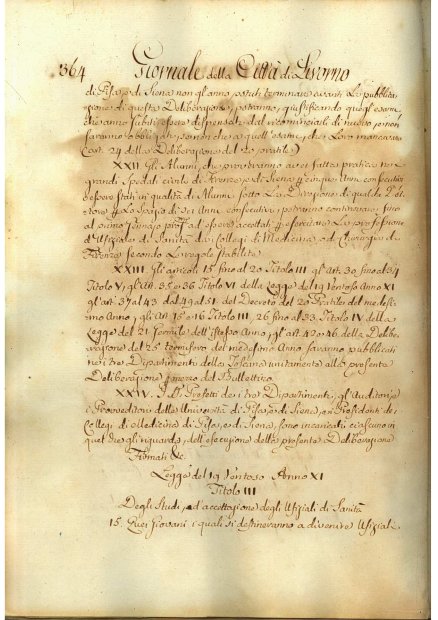 364 Giornale della Città di Livorno
di Pisa, e di Siena non gl'anno potuti terminare avanti la pubblica
zione di questa Deliberazione, potranno, giustificando quegl'esami
che anno subiti essere dispensati dal ricominciarli di nuovo, e non
saranno obbligati, se non che a quell'esame, che loro mancava
Art. 24 della Deliberazione del 20 pratile)
XXII. Gli Alunni, che proveranno aver fatta pratica nei
grandi Spedali civili di Firenze, e di Siena per cinque Anni consecutivi
essere stati in qualità di Alunni sotto la Direzione di qualche Dot
tore per lo spazio di sei Anni consecutivi, potranno continuare, fino
al primo ad essere accettati per esercitare la professione
d'Ufiziali di Sanità dai Collegi di Medicina, ed Chirurgia di
Firenze secondo le regole stabilite
XXIII. Gli articoli 15 fino al 20 Titolo III gl'art. 30 fino al 34
Titolo V, gl'art. 35 e 36 Titolo VI della Legge del 19 Ventoso Anno XI
gl'art. 37 al 43. dal 49 al 51. del Decreto del 20 Pratile del medesi
mo Anno, gl'art. 15 e 16 Titolo III, 26 fino al 33. Titolo IV della
Legge del 21 Germile dell'istesso Anno, gl'art. 42 e 46 della Delibe
razione del 25 termifero del medesimo Anno saranno pubblicati
nei tre Dipartimenti della Toscana unitamente alla presente
Deliberazione per mezzo del Bullettino.
XXIV. I SS. Prefetti dei tre Dipartimenti, gl'Auditori
e Provveditori delle Università di Pisa, e di Siena, ed i Presidenti dei
Collegi di Medicina di Pisa, e di Siena, sono incaricati ciascuno in
quel che gli riguarda, dell'esecuzione della presente Deliberazione
Firmati &c.
Legge del 19 Ventoso Anno XI
Titolo III
Degli Studj, e d'accettazione degli Ufiziali di Sanità
15. Quei Giovani i quali si destineranno a divenire Ufiziali